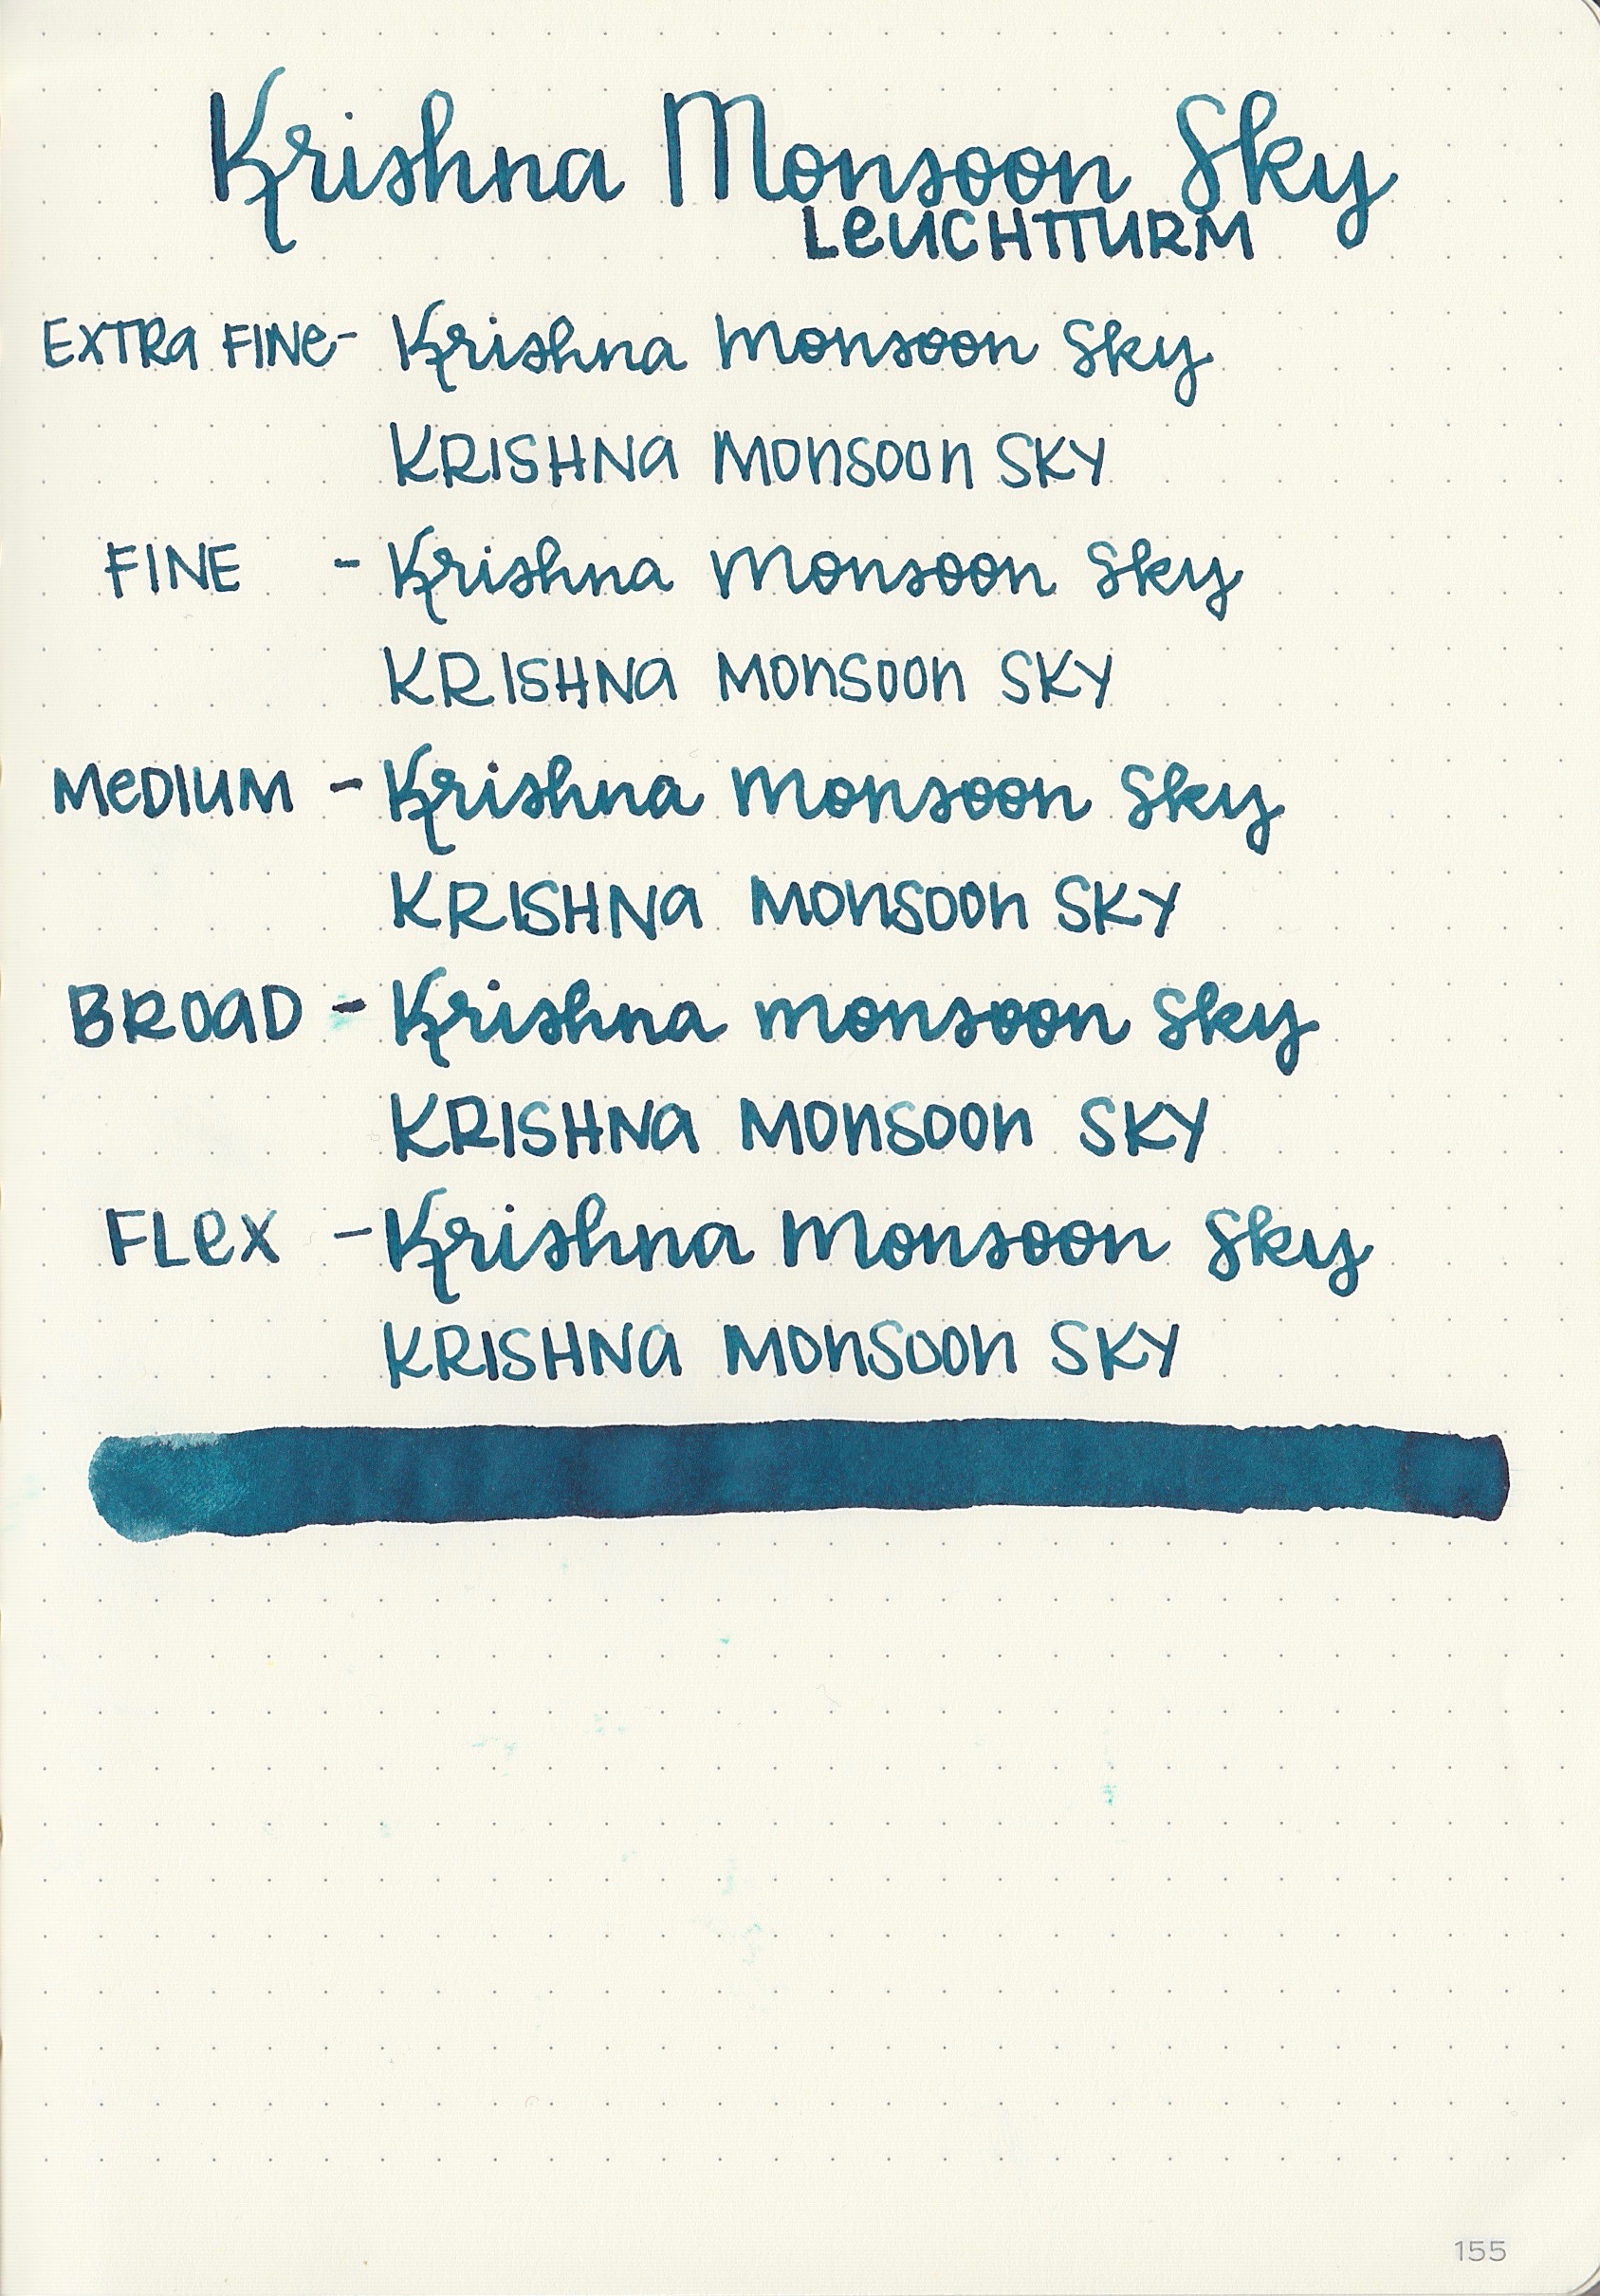 Krishna Monsoon Sky
LeUCHTTURM
EXTRa FINe- Krishna Monsoon Sky
KRISHNa MonSoon SKY
FINE - Krishna Monsoon Sky
KRISHNa MonSoon SKY
MeDIUM - Krishna Monsoon Sky
KRISHNa MonSoon SKY
BROaD - Krishna monsoon Sky
KRISHNa MonSoon SKY
FLex - Krishna Monsoon Sky
KRISHNa MonSoon SKY
155